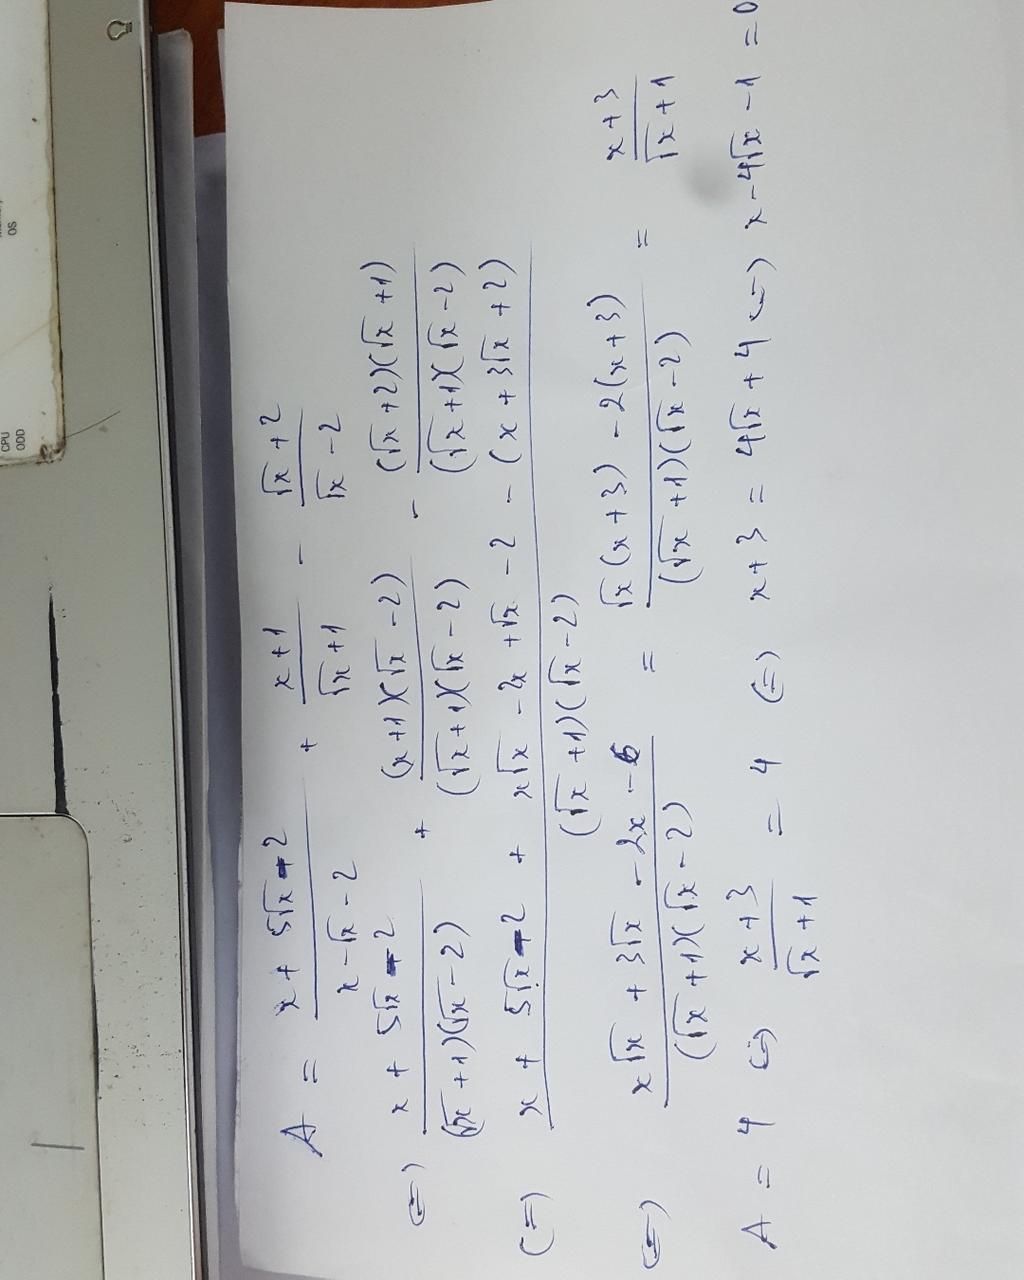 OS
CPU
ODD
A = \frac{x + 5√x - 2}{x - √x - 2} + \frac{x + 1}{√x + 1} - \frac{√x + 2}{√x - 2}
(=) \frac{x + 5√x - 2}{(√x + 1)(√x - 2)} + \frac{(x + 1)(√x - 2)}{(√x + 1)(√x - 2)} - \frac{(√x + 2)(√x + 1)}{(√x + 1)(√x - 2)}
(=) \frac{x + 5√x - 2 + x√x - 2x + √x - 2 - (x + 3√x + 2)}{(√x + 1)(√x - 2)}
(=) \frac{x√x + 3√x - 2x - 6}{(√x + 1)(√x - 2)} = \frac{√x(x + 3) - 2(x + 3)}{(√x + 1)(√x - 2)} = \frac{x + 3}{√x + 1}
A = 4 (=) \frac{x + 3}{√x + 1} = 4 (=) x + 3 = 4√x + 4 (=) x - 4√x - 1 = 0